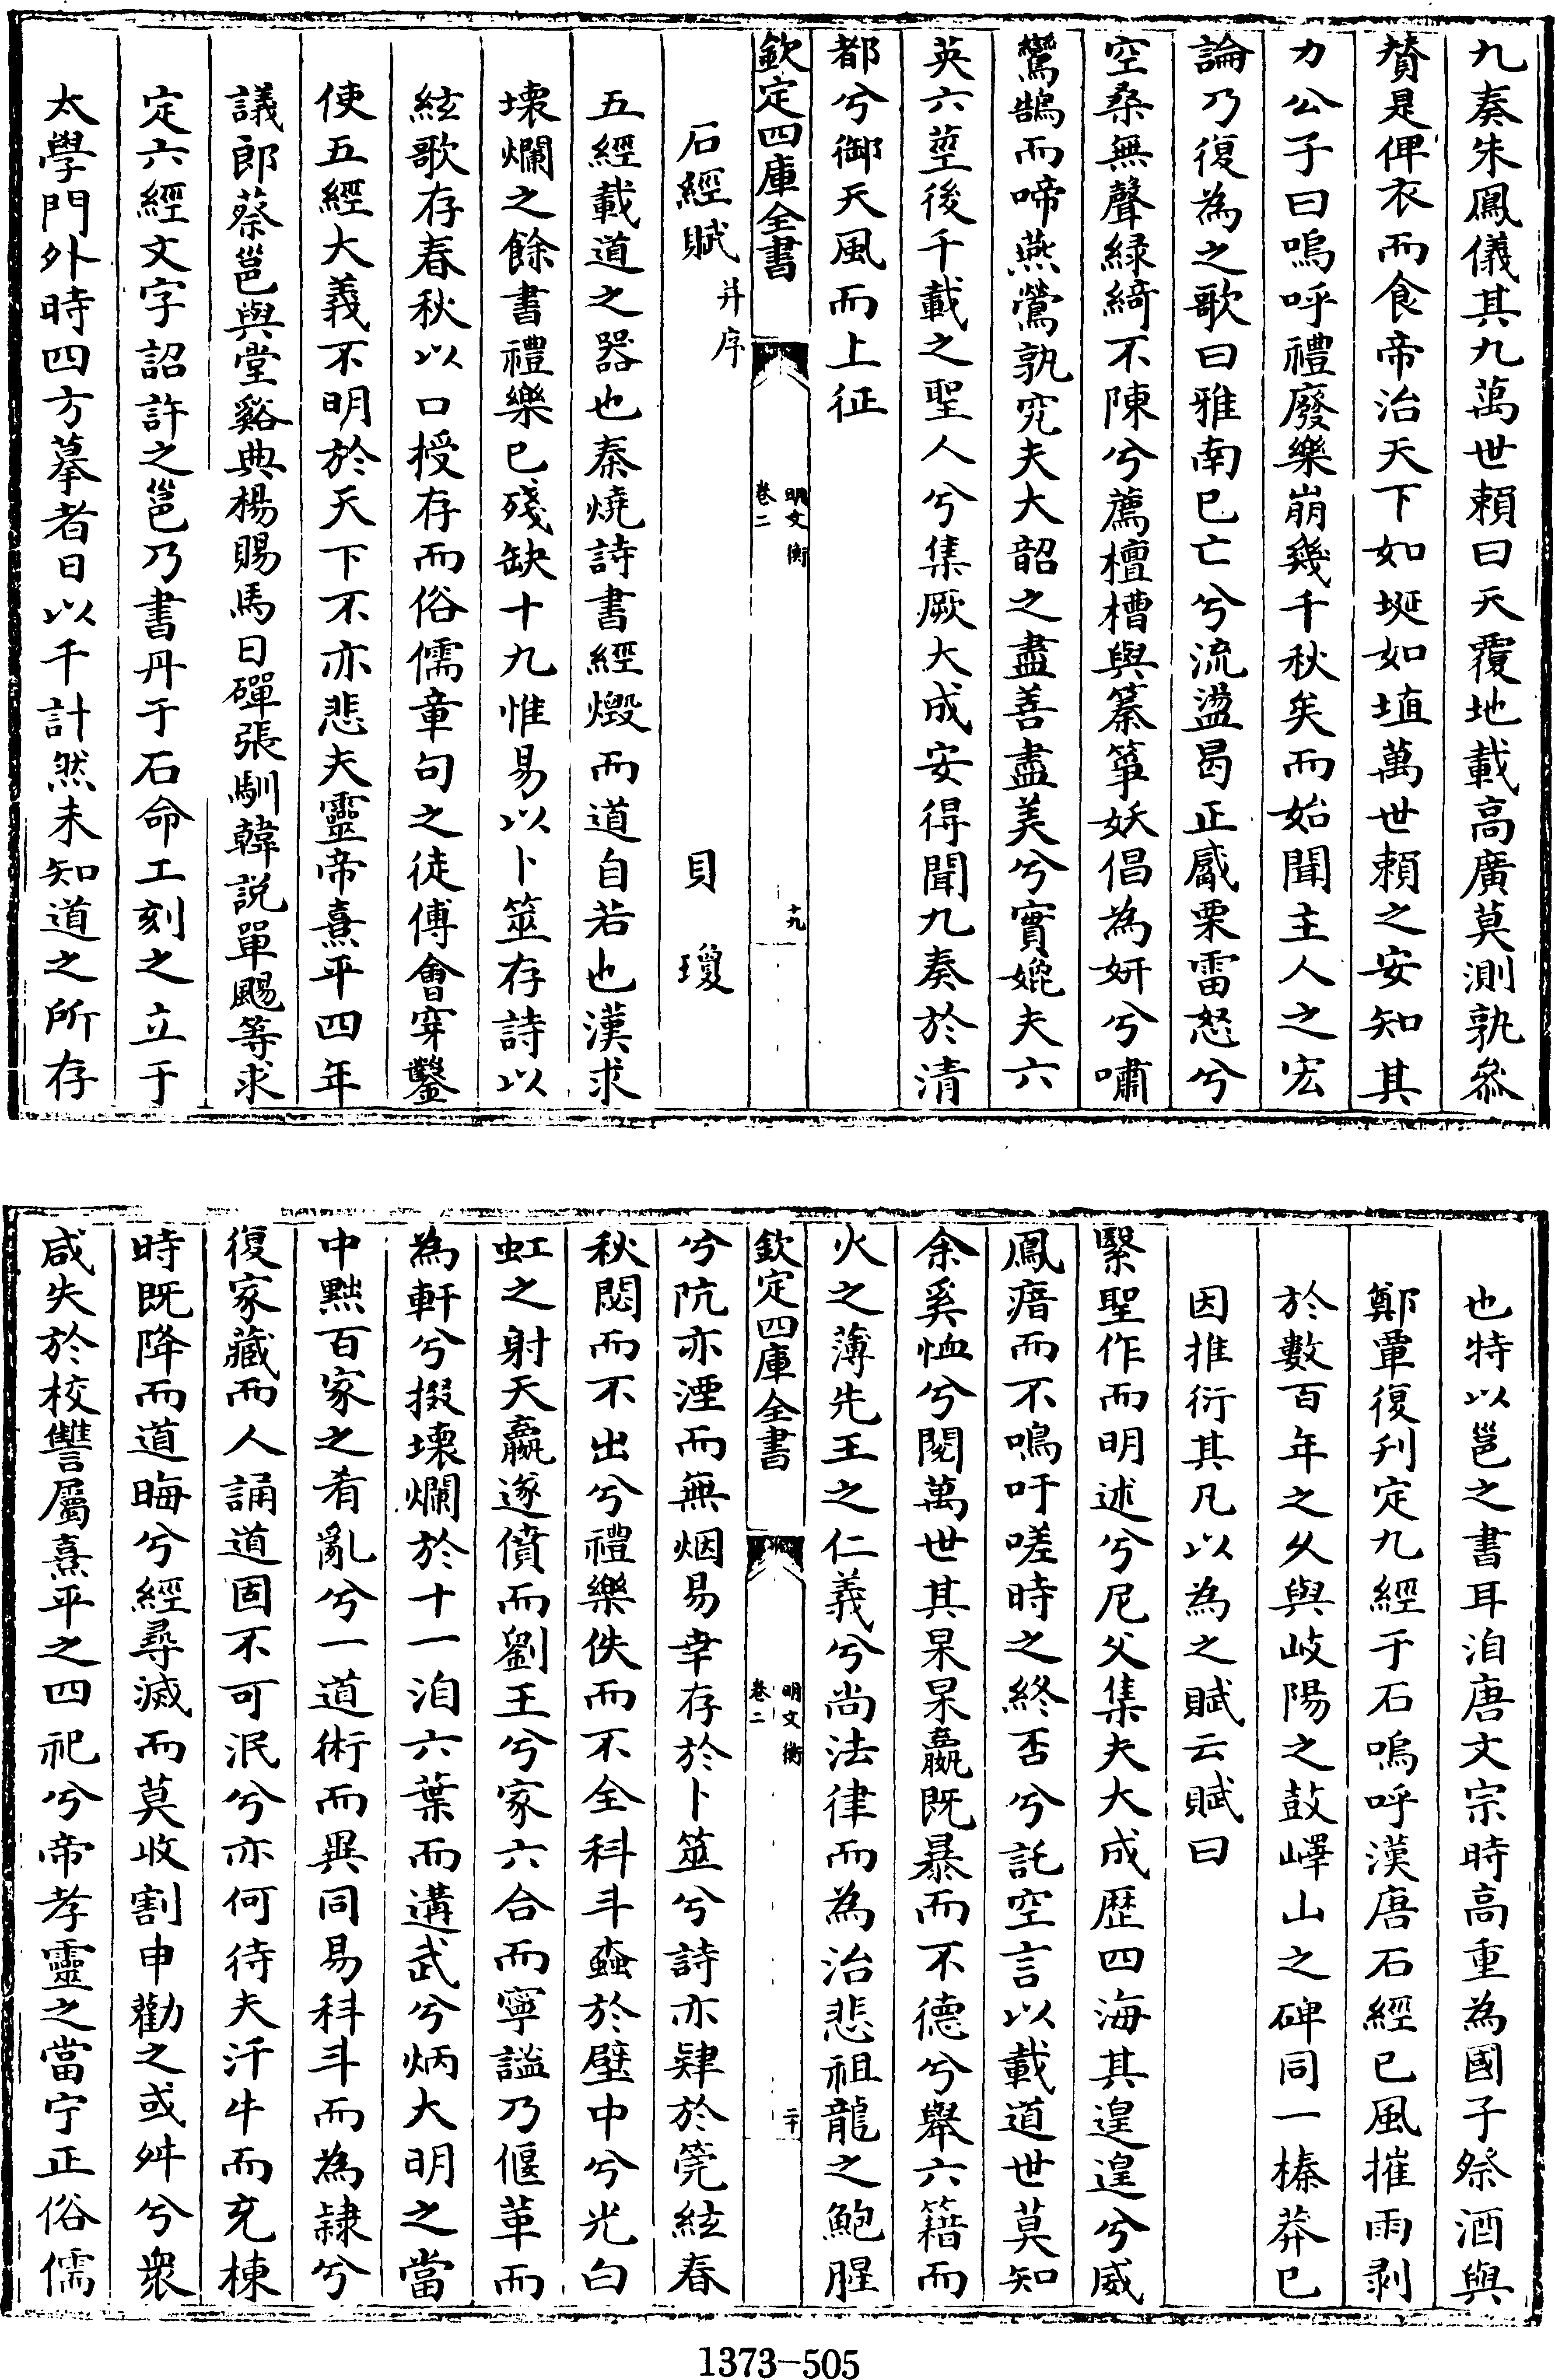 九奏朱鳳儀其九萬世賴曰天覆地載高廣莫測孰叅
賛是俾衣而食帝治天下如埏如埴萬世賴之安知其
力公子曰嗚呼禮廢樂崩幾千秋矣而始聞主人之宏
論乃復為之歌曰雅南已亡兮流盪曷正感栗雷怒兮
空桑無聲緑綺不陳兮薦檀槽與蓁箏妖倡為妍兮嘯
鸞鵠而啼燕鶯孰究夫大韶之盡善盡美兮實媲夫六
英六莖後千載之聖人兮集厥大成安得聞九奏於清
都兮御天風而上征
欽定四庫全書
明文衡
卷二
十九
石經賦并序
貝瓊
五經載道之器也秦燒詩書經燬而道自若也漢求
壊爛之餘書禮樂已殘缺十九惟易以卜筮存詩以
絃歌存春秋以口授存而俗儒章句之徒傅會穿鑿
使五經大義不明於天下不亦悲夫靈帝熹平四年
議郎蔡邕與堂谿典楊賜馬日磾張馴韓説單颺等求
定六經文字詔許之邕乃書丹于石命工刻之立于
太學門外時四方摹者日以千計然未知道之所存
也特以邕之書耳洎唐文宗時高重為國子祭酒與
鄭覃復刋定九經于石嗚呼漢唐石經已風摧雨剥
於數百年之乆與岐陽之鼓嶧山之碑同一榛莽已
因推衍其凡以為之賦云賦曰
繄聖作而明述兮尼父集夫大成歴四海其遑遑兮威
鳳瘖而不鳴吁嗟時之終否兮託空言以載道世莫知
余奚恤兮閱萬世其杲杲嬴既暴而不德兮舉六籍而
火之薄先王之仁義兮尚法律而為治悲祖龍之鮑腥
欽定四庫全書
明文衡
卷二
二十
兮阬亦湮而無烟易幸存於卜筮兮詩亦肄於筦絃春
秋閟而不出兮禮樂佚而不全科斗蟲於壁中兮光白
虹之射天嬴遂僨而劉王兮家六合而寧謐乃偃革而
為軒兮掇壊爛於十一洎六葉而遘武兮炳大明之當
中黜百家之肴亂兮一道術而異同易科斗而為隸兮
復家藏而人誦道固不可泯兮亦何待夫汗牛而充棟
時既降而道晦兮經尋滅而莫收割申勸之或舛兮衆
咸失於校讐屬熹平之四祀兮帝孝靈之當宁正俗儒
1373-505